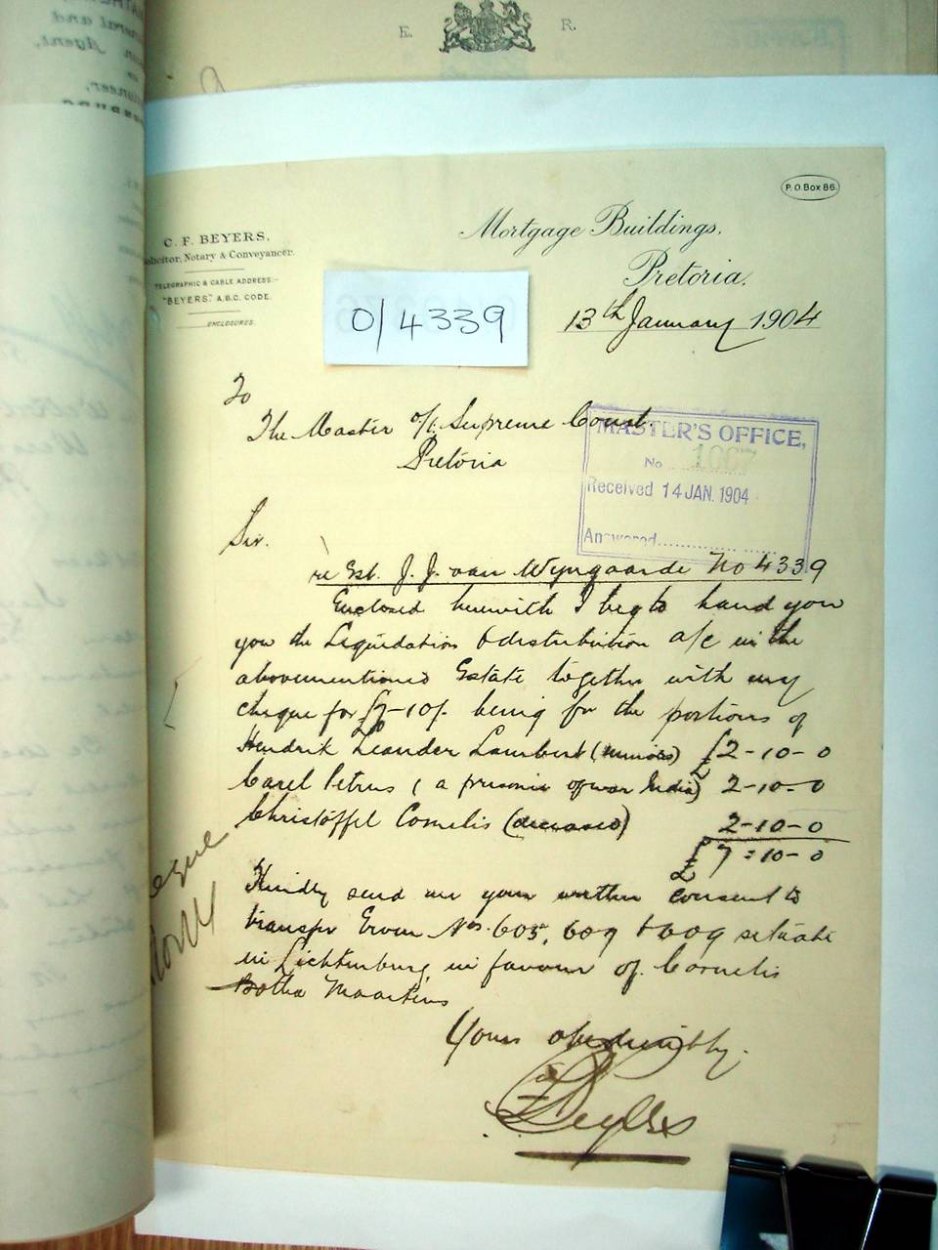 E. R.
P.O. Box 86.
C. F. BEYERS.
Solicitor, Notary & Conveyancer.
TELEGRAPHIC & CABLE ADDRESS:-
"BEYERS." A.B.C. CODE.
ENCLOSURES.
Mortgage Buildings,
Pretoria.
13th January 1904
0/4339
To
The Master o/t Supreme Court.
Pretoria
MASTER'S OFFICE,
No 1067
Received 14 JAN. 1904
Answered
Sir.
re Est. J. J. van Wyngaarde No 4339
Enclosed herewith I beg to hand you
you the Liquidation & distribution a/c in the
abovementioned Estate together with my
cheque for £7-10/- being for the portions of
Hendrik Leander Lambert (minor) £2-10-0
Carel Petrus (a prisoner of war India) 2-10-0
Christoffel Cornelis (deceased) 2-10-0
£7=10-0
Kindly send me your written consent to
transfer Erven Nos. 605, 609 situate
in Lichtenburg in favour of Cornelis
Botha Maartens
Yours obediently.
Beyers